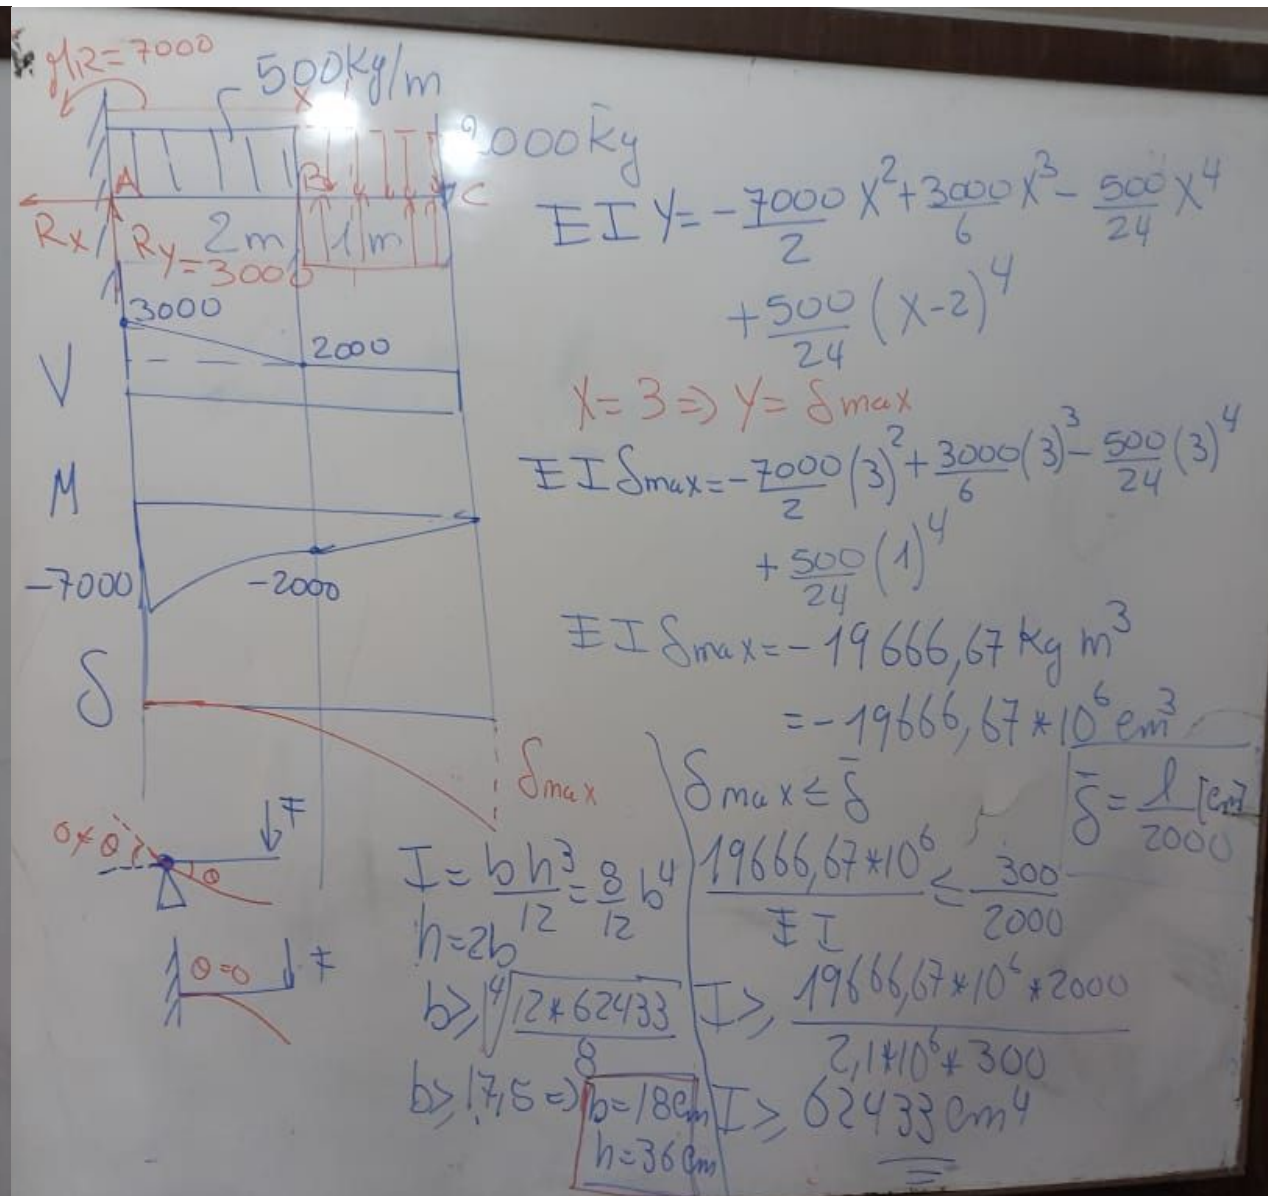 MR=7000
500kg/m
x
2000kg
A
B
C
Rx
Ry=3000
2m
1m
3000
V
2000
M
-7000
-2000
δ
δmax
F
θ
θ
θ=0
F
EIY=-7000/2 X²+3000/6 X³-500/24 X⁴
+500/24 (X-2)⁴
X=3⇒Y=δmax
EIδmax=-7000/2 (3)²+3000/6 (3)³-500/24 (3)⁴
+500/24 (1)⁴
EIδmax=-19666,67 kg m³
=-19666,67*10⁶ cm³
δmax≤δ̄
δ̄=l/2000 [cm]
19666,67*10⁶/EI ≤ 300/2000
I≥ 19666,67*10⁶*2000/2,1*10⁶*300
I≥ 62433cm⁴
I=bh³/12=8/12 b⁴
h=2b
b≥⁴√12*62433/8
b≥17,5⇒b=18cm
h=36cm